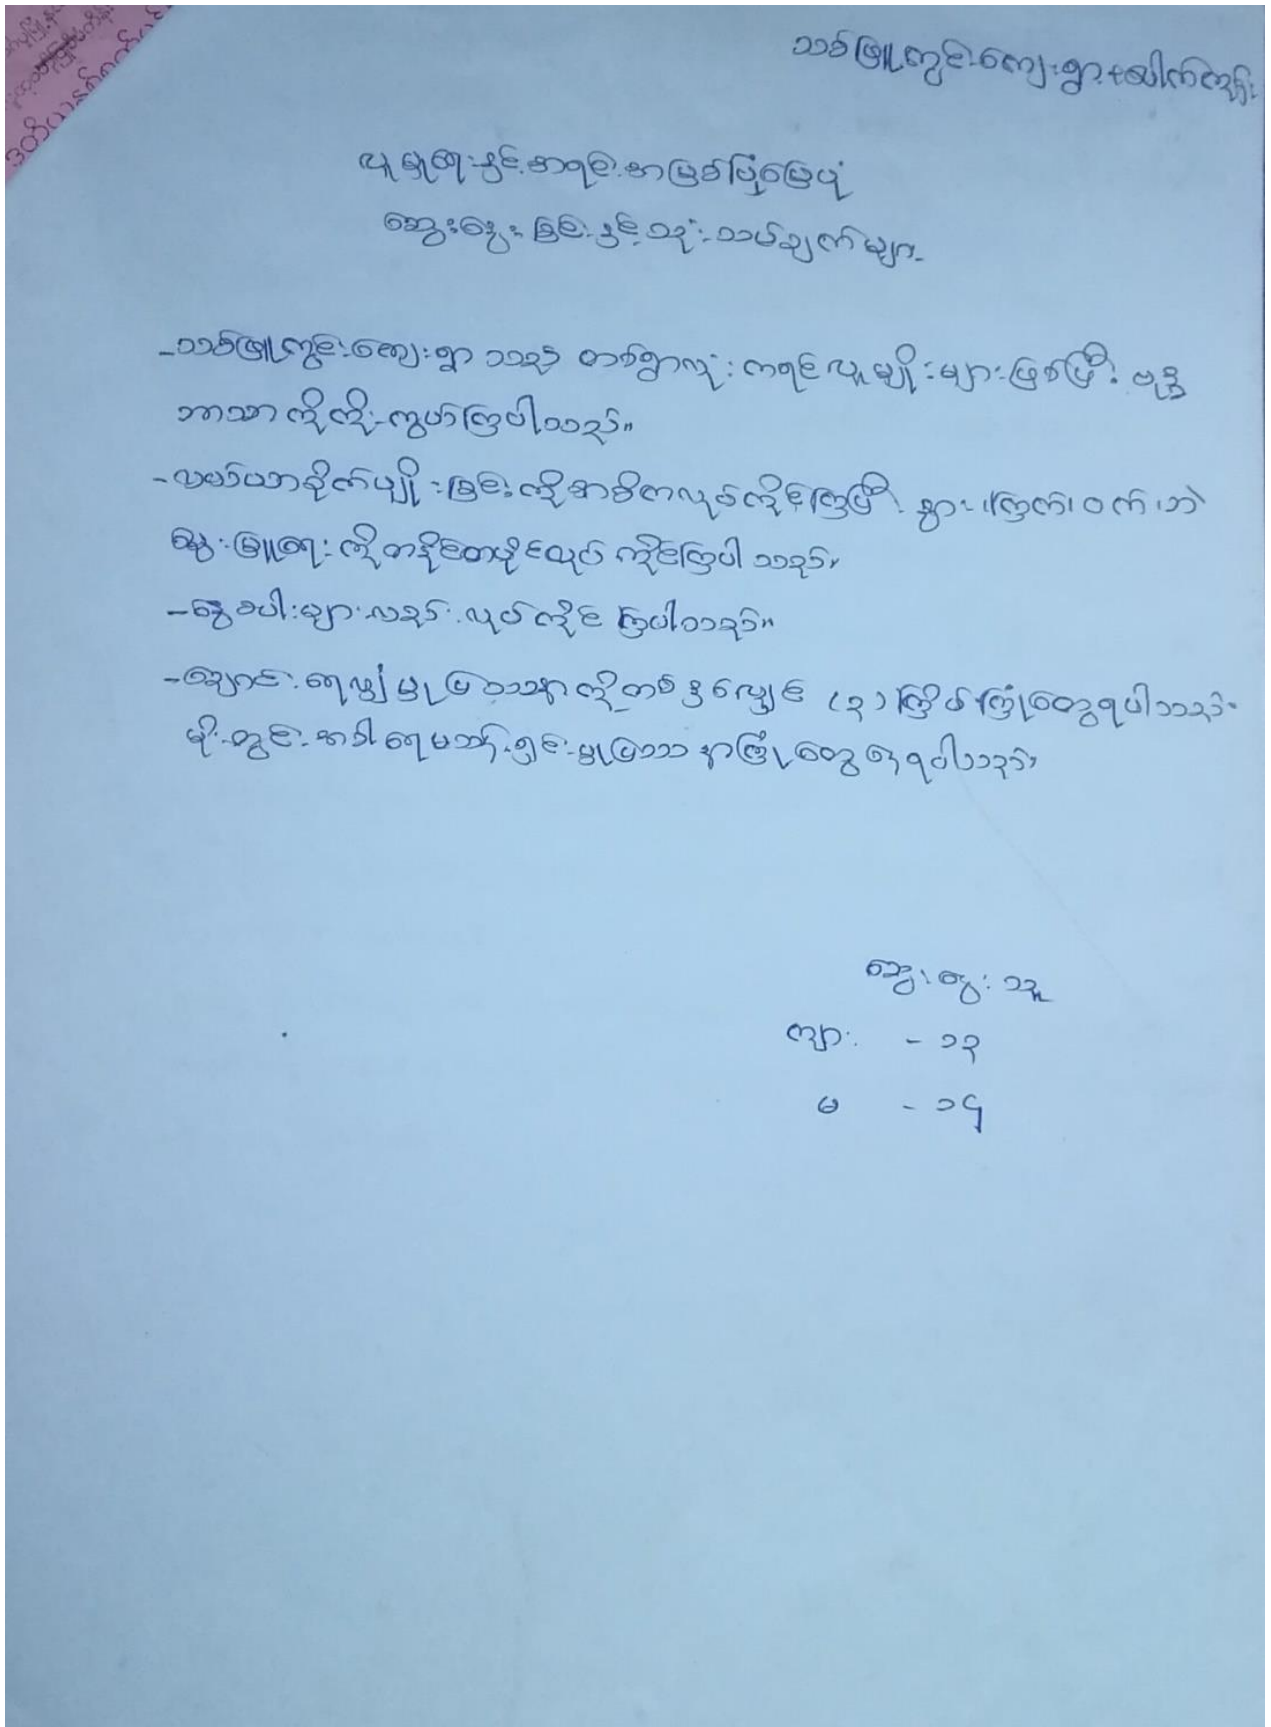 သစ်ဖြူကွင်းကျေးရွာ + ပေါက်ကုန်း
လူမှုရေးနှင့်အရင်းအမြစ်ပြမြေပုံ
ဆွေးနွေးခြင်းနှင့်သုံးသပ်ချက်များ
- သစ်ဖြူကွင်းကျေးရွာသည် တစ်ရွာလုံးကရင်လူမျိုးများဖြစ်ပြီး ဗုဒ္ဓ
ဘာသာကိုကိုးကွယ်ကြပါသည်။
- လယ်ယာစိုက်ပျိုးခြင်းကိုအဓိကလုပ်ကိုင်ကြပြီး နွား၊ကြက်၊ဝက်၊ဘဲ
မွေးမြူရေးကိုတနိုင်တပိုင်လုပ်ကိုင်ကြပါသည်။
- နွေစပါးများလည်းလုပ်ကိုင်ကြပါသည်။
- ချောင်းရေလျှံမှုပြဿနာကိုတစ်နှစ်လျှင် (၃) ကြိမ်ကြုံတွေ့ရပါသည်။
မိုးတွင်းအခါရေမသန့်ရှင်းမှုပြဿနာကြုံတွေ့နေရပါသည်။
ဆွေးနွေးသူ
ကျား - ၁၃
မ - ၁၄